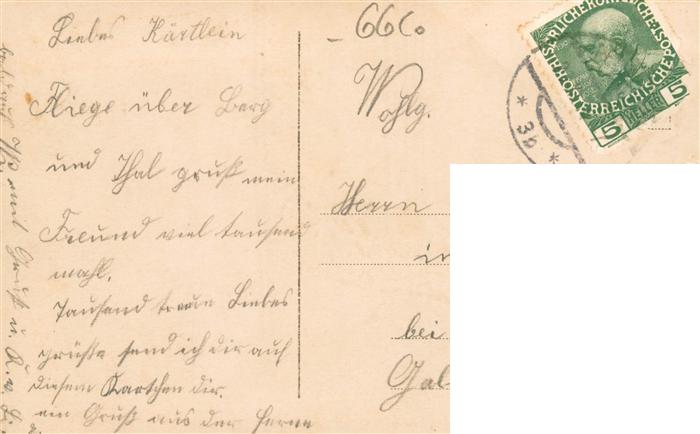 Liebes Kärtlein
Fliege über Berg
und Thal grußt mein
Freund viel tausend
mahl,
Tausend treue Liebes
grüße send ich dir auf
diesem Kartchen dir.
ein Gruß aus der Ferne
Gruß u. K. v.
66
Wohlg.
Herrn
in
bei
Gal
KAISERLICHE KÖNIGLICHE ÖSTERREICHISCHE POST
5 HELLER 5
* 3b *